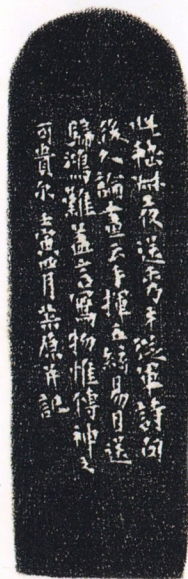 此嵇叔夜送秀才從軍詩句
後人論畫云手揮五絃易目送
歸鴻難蓋言寫物惟傳神之
可貴尔 壬寅四月榮原并記